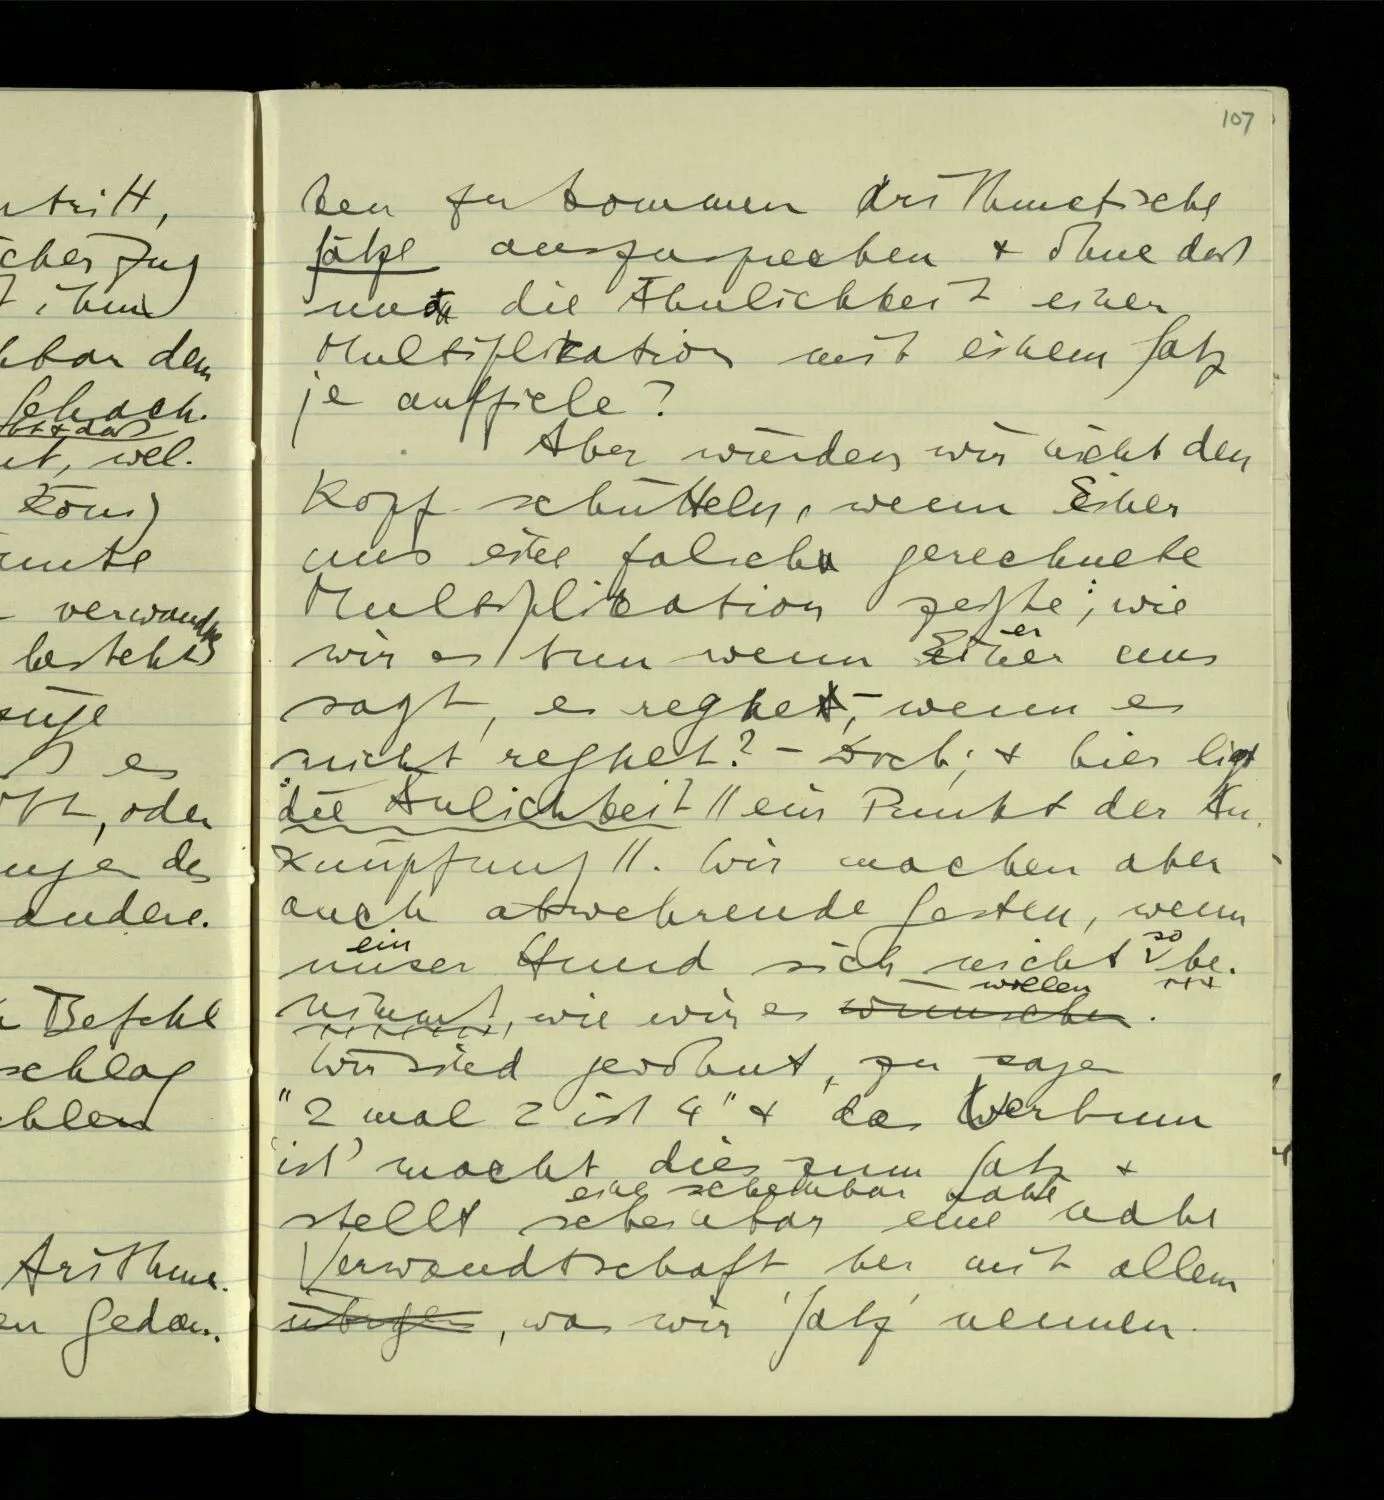 107
ntritt,
icher Zug
t ihm
hbar dem
Schach.
nt, wel.
König
annte
verwandte
besteht
züge
es
oder
des
andere.
Befehl
schlag
ehlen
Arithme.
en Gedan.
ken zu kommen Arithmetische
Sätze auszusprechen + ohne daß
uns die Ähnlichkeit einer
Multiplikation mit einem Satz
je auffiele?
Aber würden wir nicht den
Kopf schütteln, wenn Einer
uns eine falsch gerechnete
Multiplikation zeigte; wie
er
wir es tun wenn Einer uns
sagt, es regnet, – wenn es
nicht regnet? – Doch; + hier ligt
die Änlichkeit || ein Punkt der An.
knüpfung ||. Wir machen aber
auch abwehrende Gesten, wenn
ein so
unser Hund sich nicht be.
wollen
nimmt, wie wir es wünschen.
Wir sind gewöhnt, zu sagen
"2 mal 2 ist 4" + das Verbum
'ist' macht dies zum Satz +
eine scheinbar nahe
stellt scheinbar eine nahe
Verwandtschaft her mit allem
übrigen, was wir 'Satz' nennen.